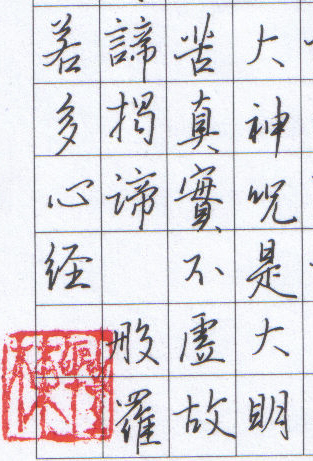 大神咒是大明
苦真實不虛故
諦揭諦 般羅
若多心経